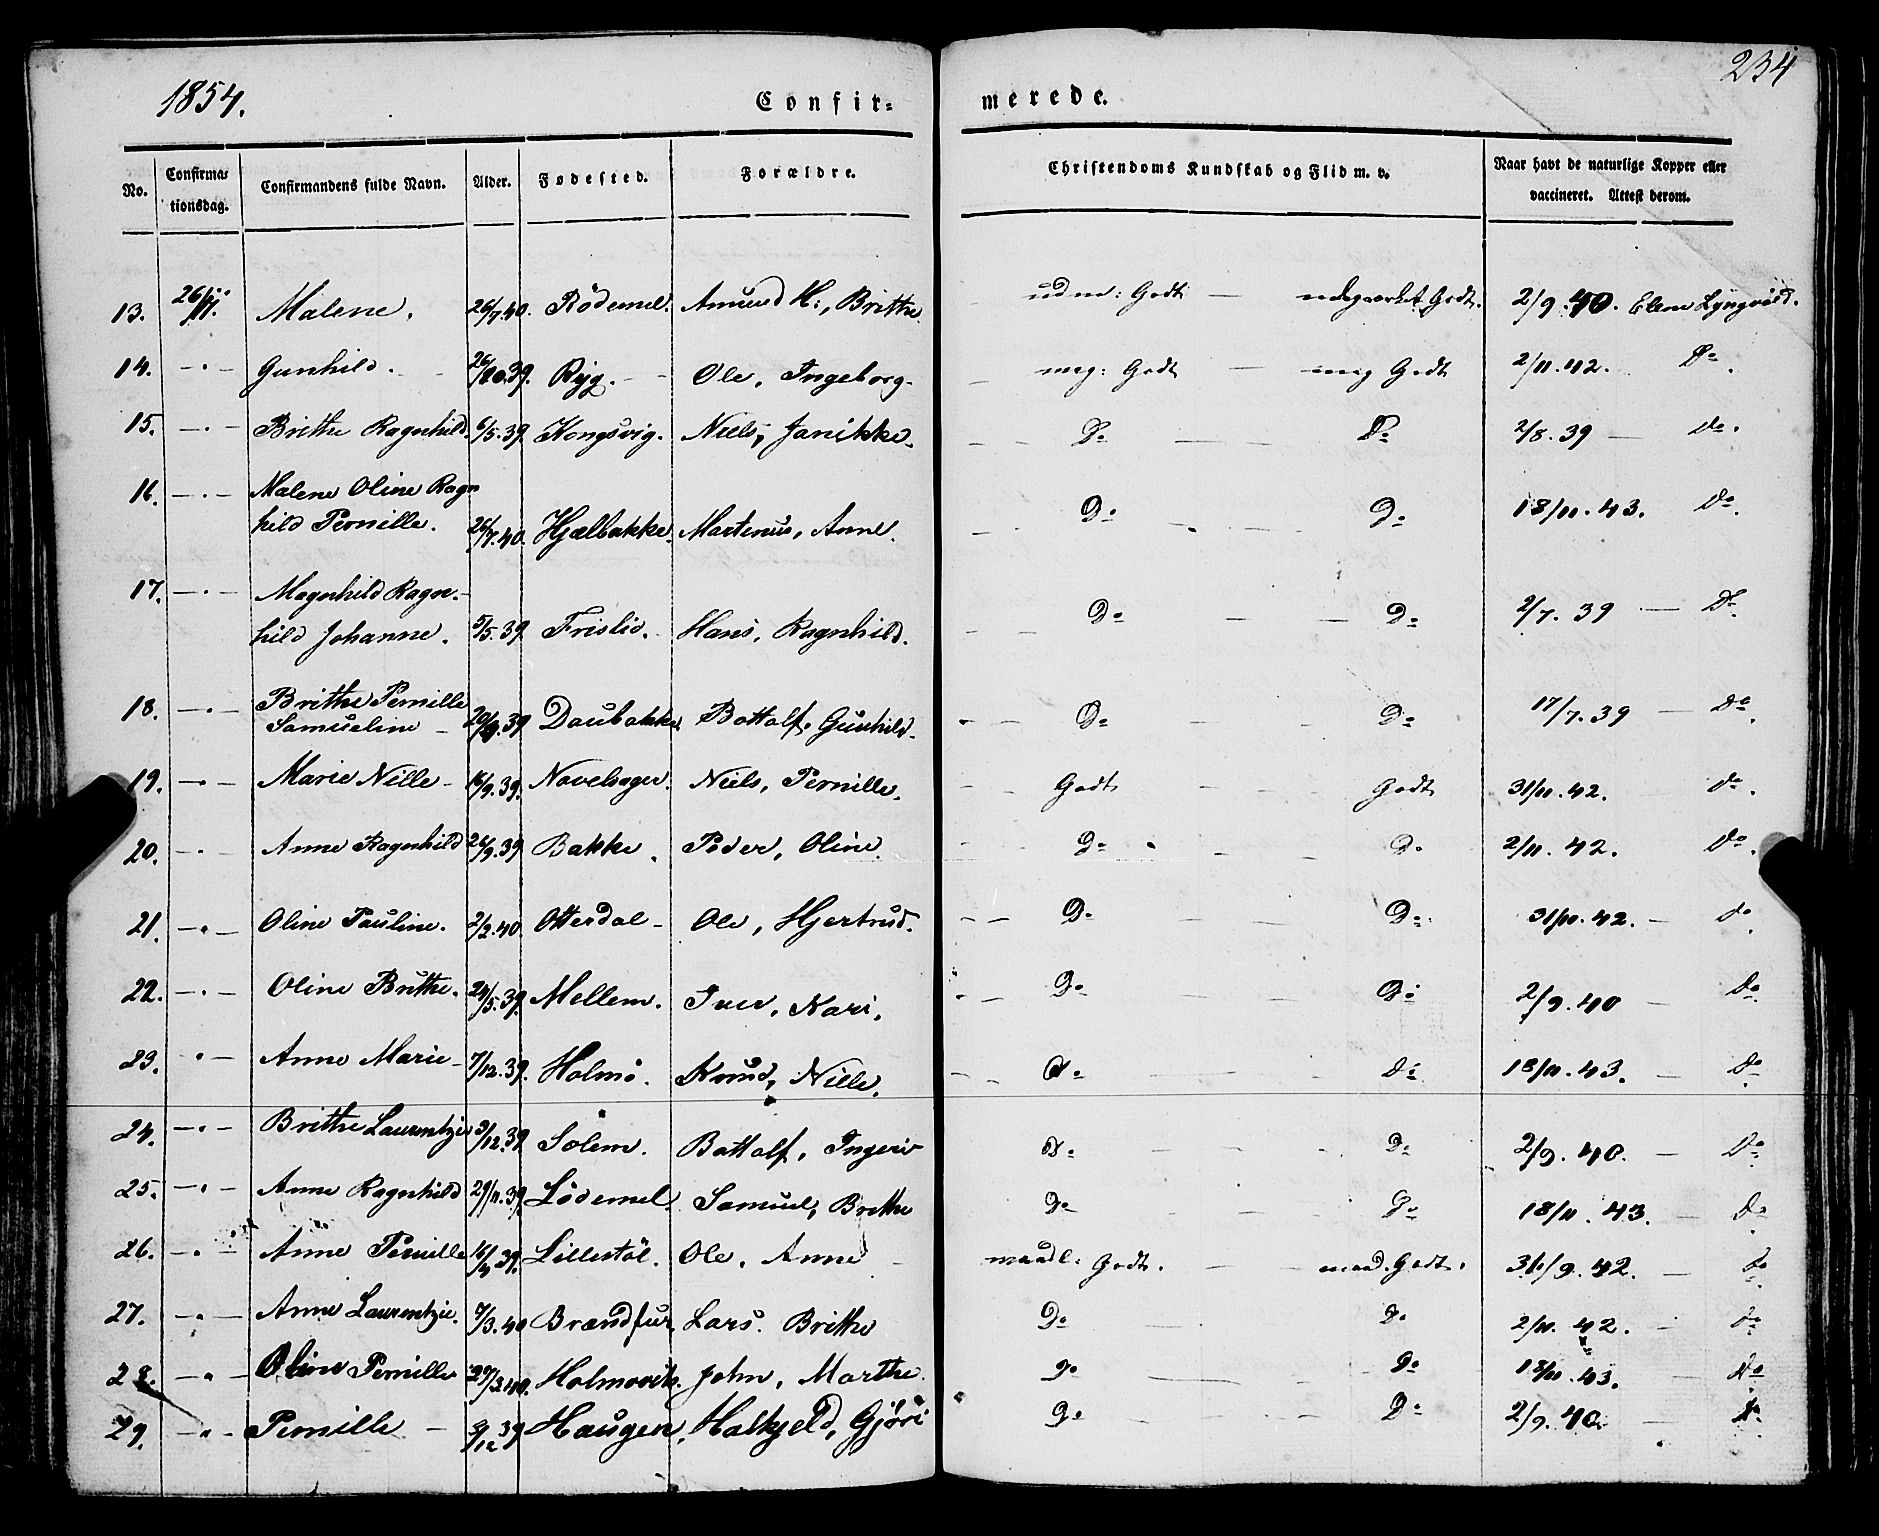 1854.
Confir-
merede.
234
No.
Confirma-
tionsdag.
Confirmandens fulde Navn.
Alder.
Fødested.
Forældre.
Christendoms Kundskab og Flid m. v.
Naar havt de naturlige Kopper eller
vaccineret. Attest derom.
13. 26/11. Malene. 26/7.40. Rödemel. Amund H:, Brithe. udm: Godt — Godt. 2/9.40. Elene
14. - " - Gunhild. 26/10.39. Ryg. Ole, Ingeborg. — meg: Godt — meg Godt 2/11.42. Do.
15. - " - Brithe Ragnhild. 6/5.39. Kongsvig. Niels, Janikke. Do Do 2/8.39 — Do.
16. - " - Malene Oline Ragn
hild Pernille. 26/7.40. Hjelbakke. Martinus, Anne. Do Do 18/11.43. Do.
17. - " - Magnhild Ragn-
hild Johanne. 5/5.39. Frislid. Hans, Ragnhild. Do Do 2/7.39 — Do.
18. - " - Brithe Pernille
Samueline 20/9.39 Daubakke. Bottolf, Gunhild. Do Do 17/7.39 — Do.
19. - " - Marie Nille - 16/9.39. Niels, Pernille. Godt Godt 31/11.42. do.
20. - " - Anne Ragnhild 26/9.39 Bakke. Peder, Oline. Do Do 2/11.42. Do.
21. - " - Oline Pauline. 2/2.40. Otterdal - Ole, Hjertrud. Do Do 31/10.42. — do.
22. - " - Oline Brithe. 24/5.39. Mellem. Iver, Kari. Do Do 2/9.40 — Do.
23. - " - Anne Marie - 7/12.39. Holmö. Knud, Nille. Do Do 18/11.43. — Do.
24. - " - Brithe Laurentzie 3/12.39. Solem. Bottolf, Do Do 2/9.40. — Do.
25. - " - Anne Ragnhild 29/11.39. Lödemel. Samuel, Brithe Do Do 18/11.43. — Do.
26. - " - Anne Pernille 39. Lillestöl. Ole, Anne maadl: Godt. — maad. Godt. 42. — do
27. - " - Anne Laurentzie. 7/3.40 Lars. Brithe Do Do 2/11.42. — do
28. - " - Oline Pernille 29/3.40. Holmovik. John, Marthe. Do Do 18/11.43. — Do
29. - " - Pernille — 3/12 39 Haugen. Halkjeld, Gjöri Do Do 2/9.40. — Do